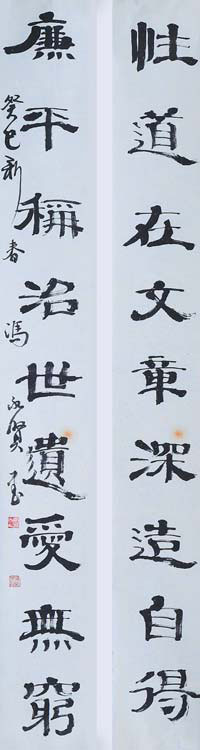 性道在文章深造自得
廉平稱治世遺愛無窮
癸巳新春 馮永賢